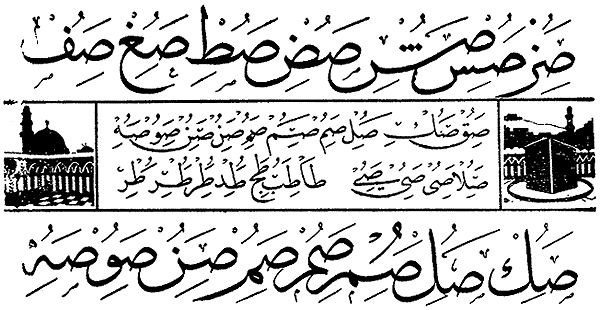 صز صس صش صض صط صغ صف
صق صك صل صم صم صم صن صن صو صه
صلا صى صي صے طا طب طج طد طر
صك صل صم صم صم صن صو صه